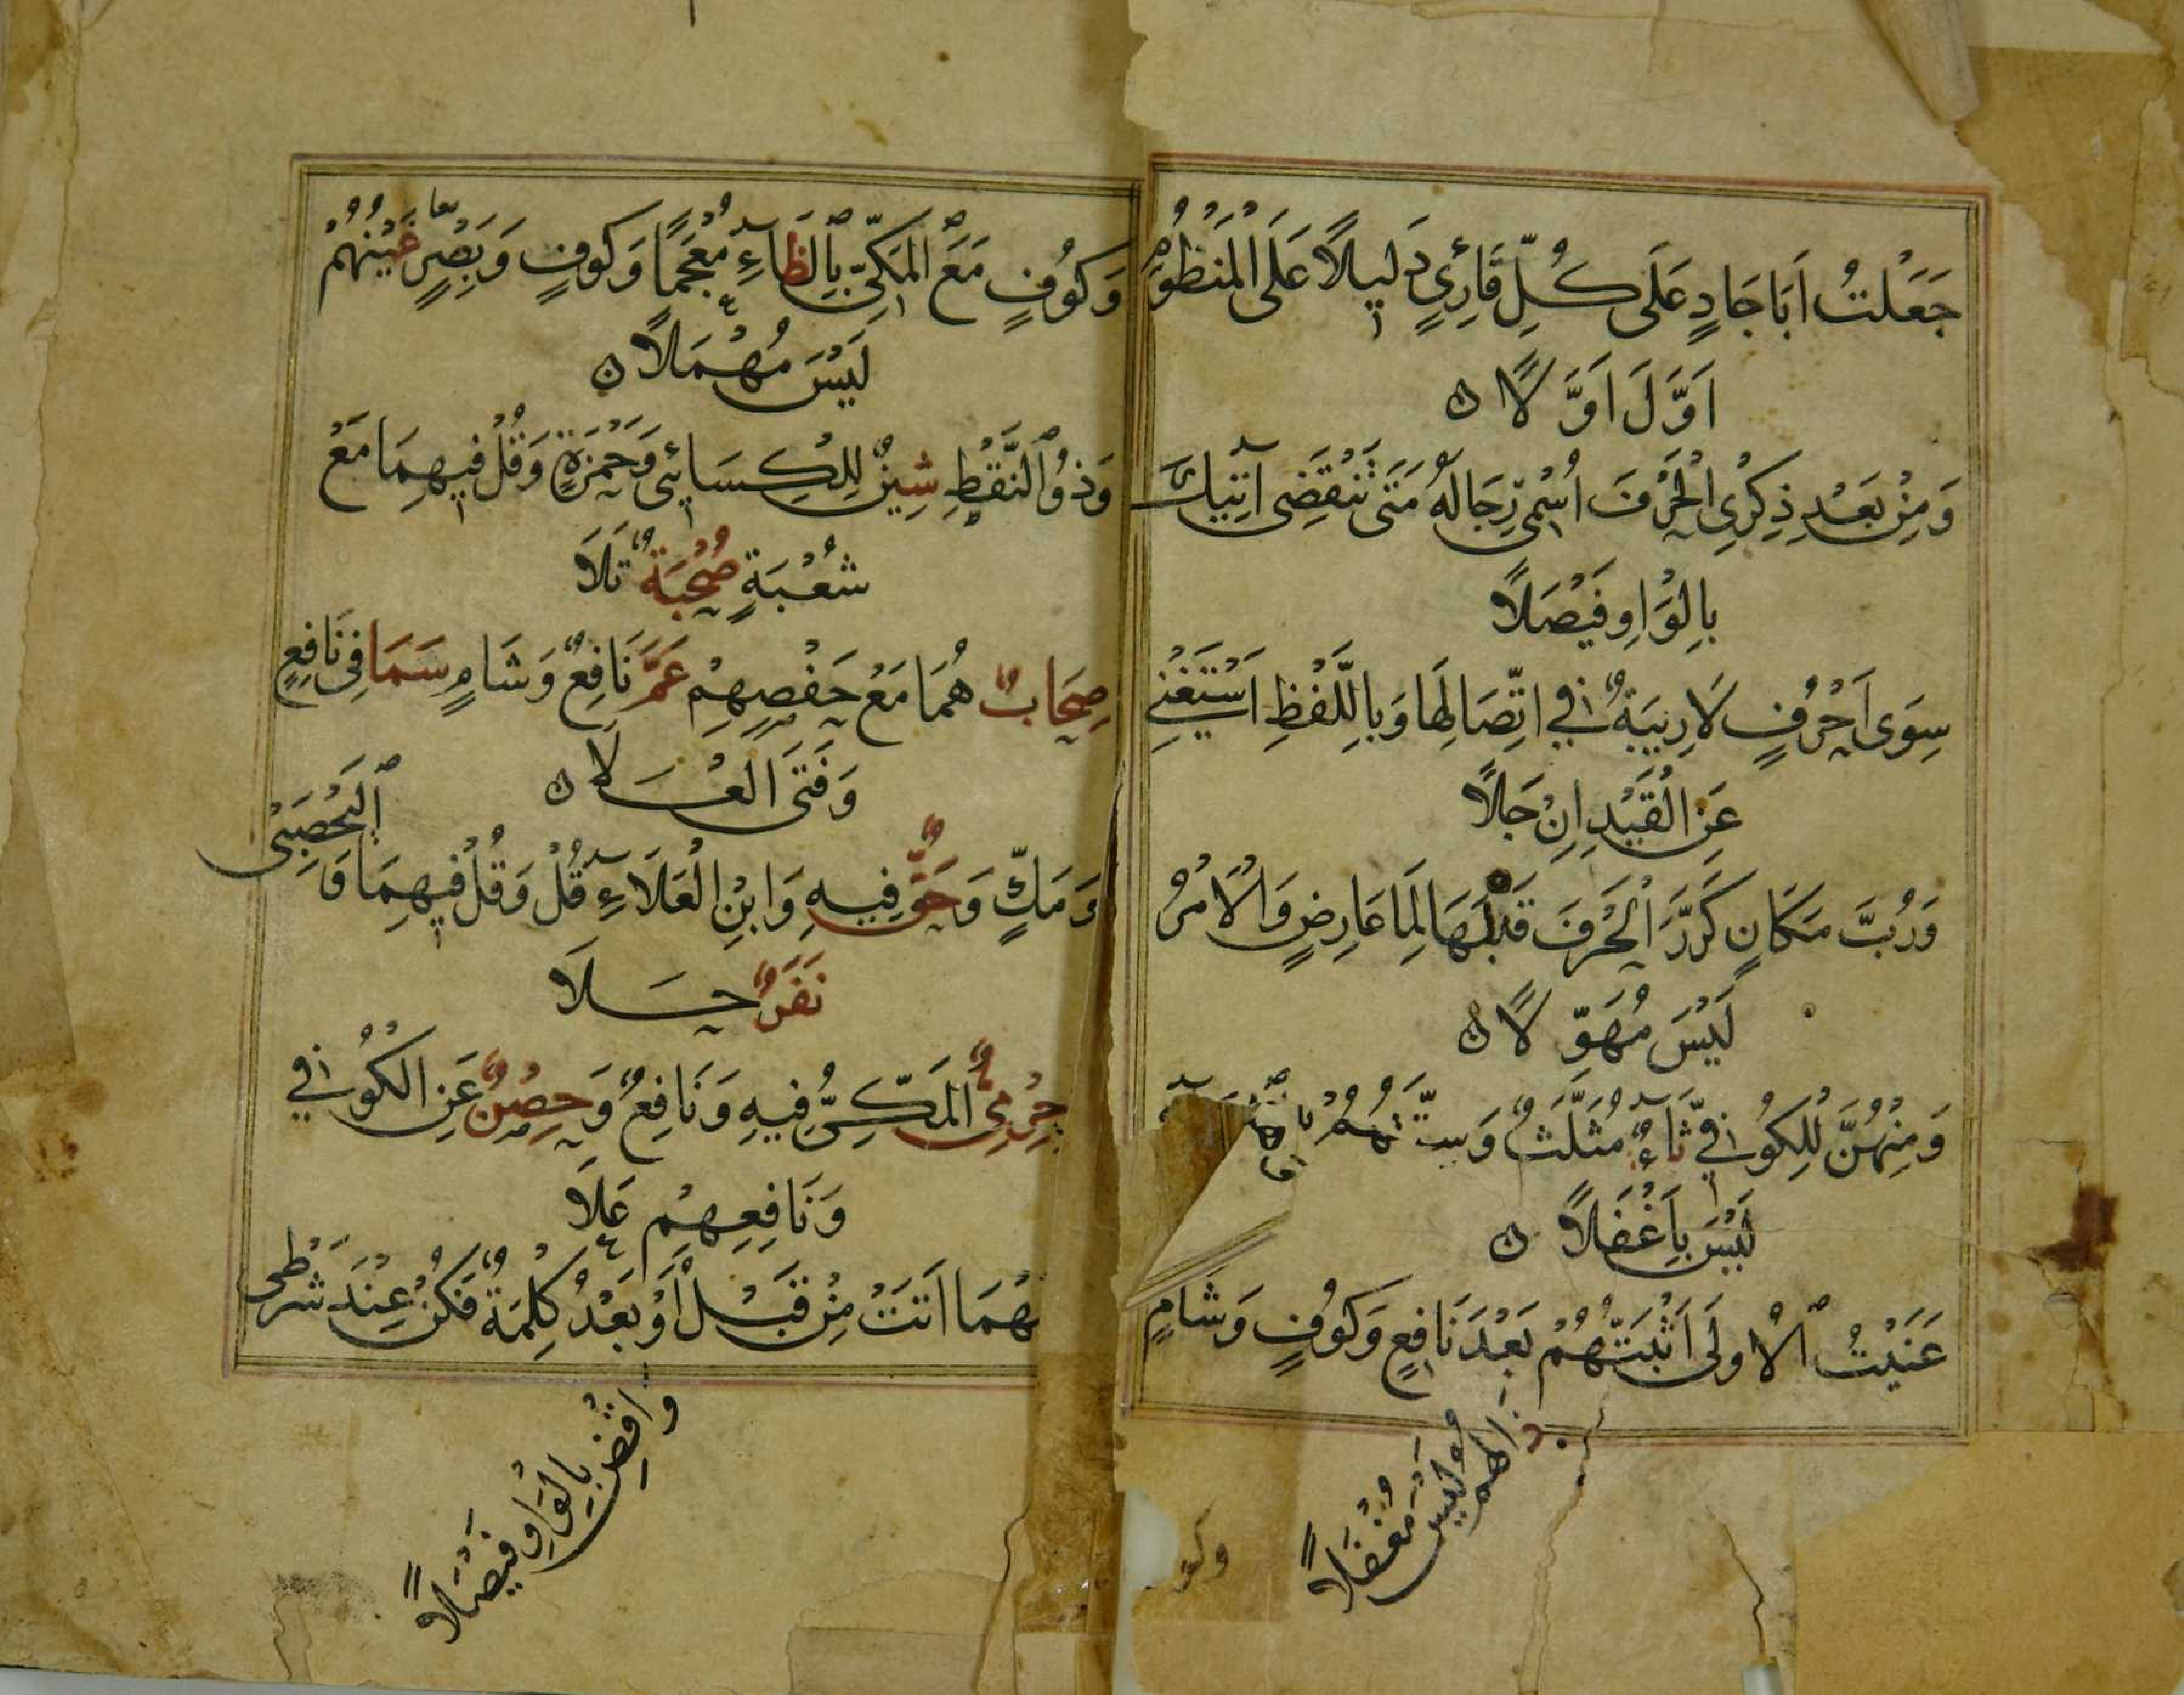 جَعَلْتُ اَبَا جَادٍ عَلَى كُلِّ قَارِئٍ دَلِيلًا عَلَى الْمَنْظُومِ
اَوَّلَ اَوَّلًا
وَمِنْ بَعْدِ ذِكْرِى الْحَرْفَ اُسْمِى رِجَالَهُ مَتَى تَنْقَضِى آتِيكَ
بِالْوَاوِ فَيْصَلًا
سِوَى اَحْرُفٍ لَا رِيبَةٌ فِي اتِّصَالِهَا وَبِاللَّفْظِ اَسْتَغْنِي
عَنِ الْقَيْدِ اِنْ جَلًا
وَرُبَّ مَكَانٍ كَرَّرَ الْحَرْفَ قَبْلَهَا لِمَا عَارِضٍ وَالْاَمْرُ
لَيْسَ مُهَوِّلًا
وَمِنْهُنَّ لِلْكُوفِيِّ ثَآءٌ مُثَلَّثٌ وَسِتَّتُهُمْ
لَيْسَ بِاَغْفَلًا
عَنَيْتُ ٱلْاُولَى اَثْبَتُّهُمْ بَعْدَ نَافِعٍ وَكُوفٍ وَشَامٍ
ذَالُهُمْ لَيْسَ مُغْفَلًا
وكو
وَكُوفٍ مَعَ ٱلْمَكِّيِّ بِٱلظَّآءِ مُعْجَمًا وَكُوفٍ وَبَصْرٍ غَيْنُهُمْ
لَيْسَ مُهْمَلًا
وَذُو ٱلنَّقْطِ شِينٌ لِلْكِسَائِى وَحَمْزَةٍ وَقُلْ فِيهِمَا مَعْ
شُعْبَةٍ صُحْبَةٌ تَلَا
صِحَابٌ هُمَا مَعْ حَفْصِهِمْ عَمَّ نَافِعٌ وَشَامٍ سَمَا فِى نَافِعٍ
وَفَتَى الْعَلَا
وَمَكٍّ وَحَقٌّ فِيهِ وَابْنِ الْعَلَآءِ قُلْ وَقُلْ فِيهِمَا وَ ٱلْيَحْصَبِى
نَفَرٌ حَلَا
حِرْمِىٌّ الْمَكِّيُّ فِيهِ وَنَافِعٌ وَحِصْنٌ عَنِ الْكُوفِي
وَنَافِعِهِمْ عَلَا
هْمَا اَتَتْ مِنْ قَبْلُ اَوْ بَعْدُ كِلْمَةٌ فَكُنْ عِنْدَ شَرْطِى
وَاقْضِ بِالْوَاوِ فَيْصَلًا